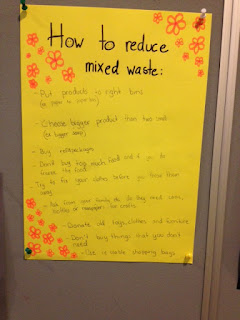 How to reduce
mixed waste:
- Put products to right bins
- Choose bigger product from two small
(or bigger
- Buy
- Don't buy too much food and if you do
freeze the food.
- Try to fix your clothes before you throw them
away
- Ask from your family do they need cans,
bottles or newspaper for crafts.
- Donate old toys, clothes and furniture
- Don't buy things that you don't
need
- Use a textile shopping bags